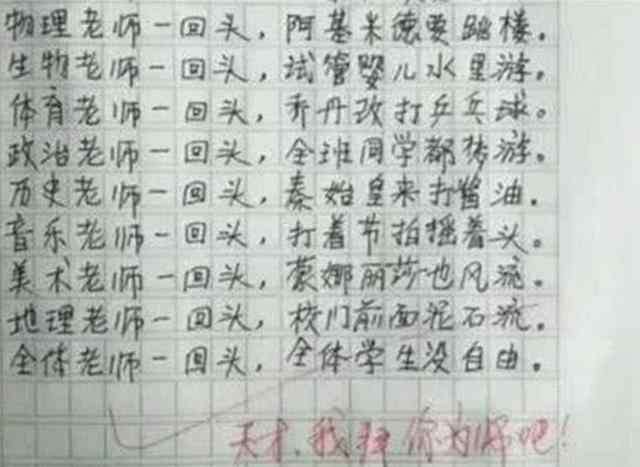 物理老师一回头，阿基米德要跳楼。
生物老师一回头，试管婴儿水里游。
体育老师一回头，乔丹改打乒乓球。
政治老师一回头，全班同学都梦游。
历史老师一回头，秦始皇来打酱油。
音乐老师一回头，打着节拍摇着头。
美术老师一回头，蒙娜丽莎也风流。
地理老师一回头，校门前面泥石流。
全体老师一回头，全体学生没自由。
天才，我拜你为师吧！